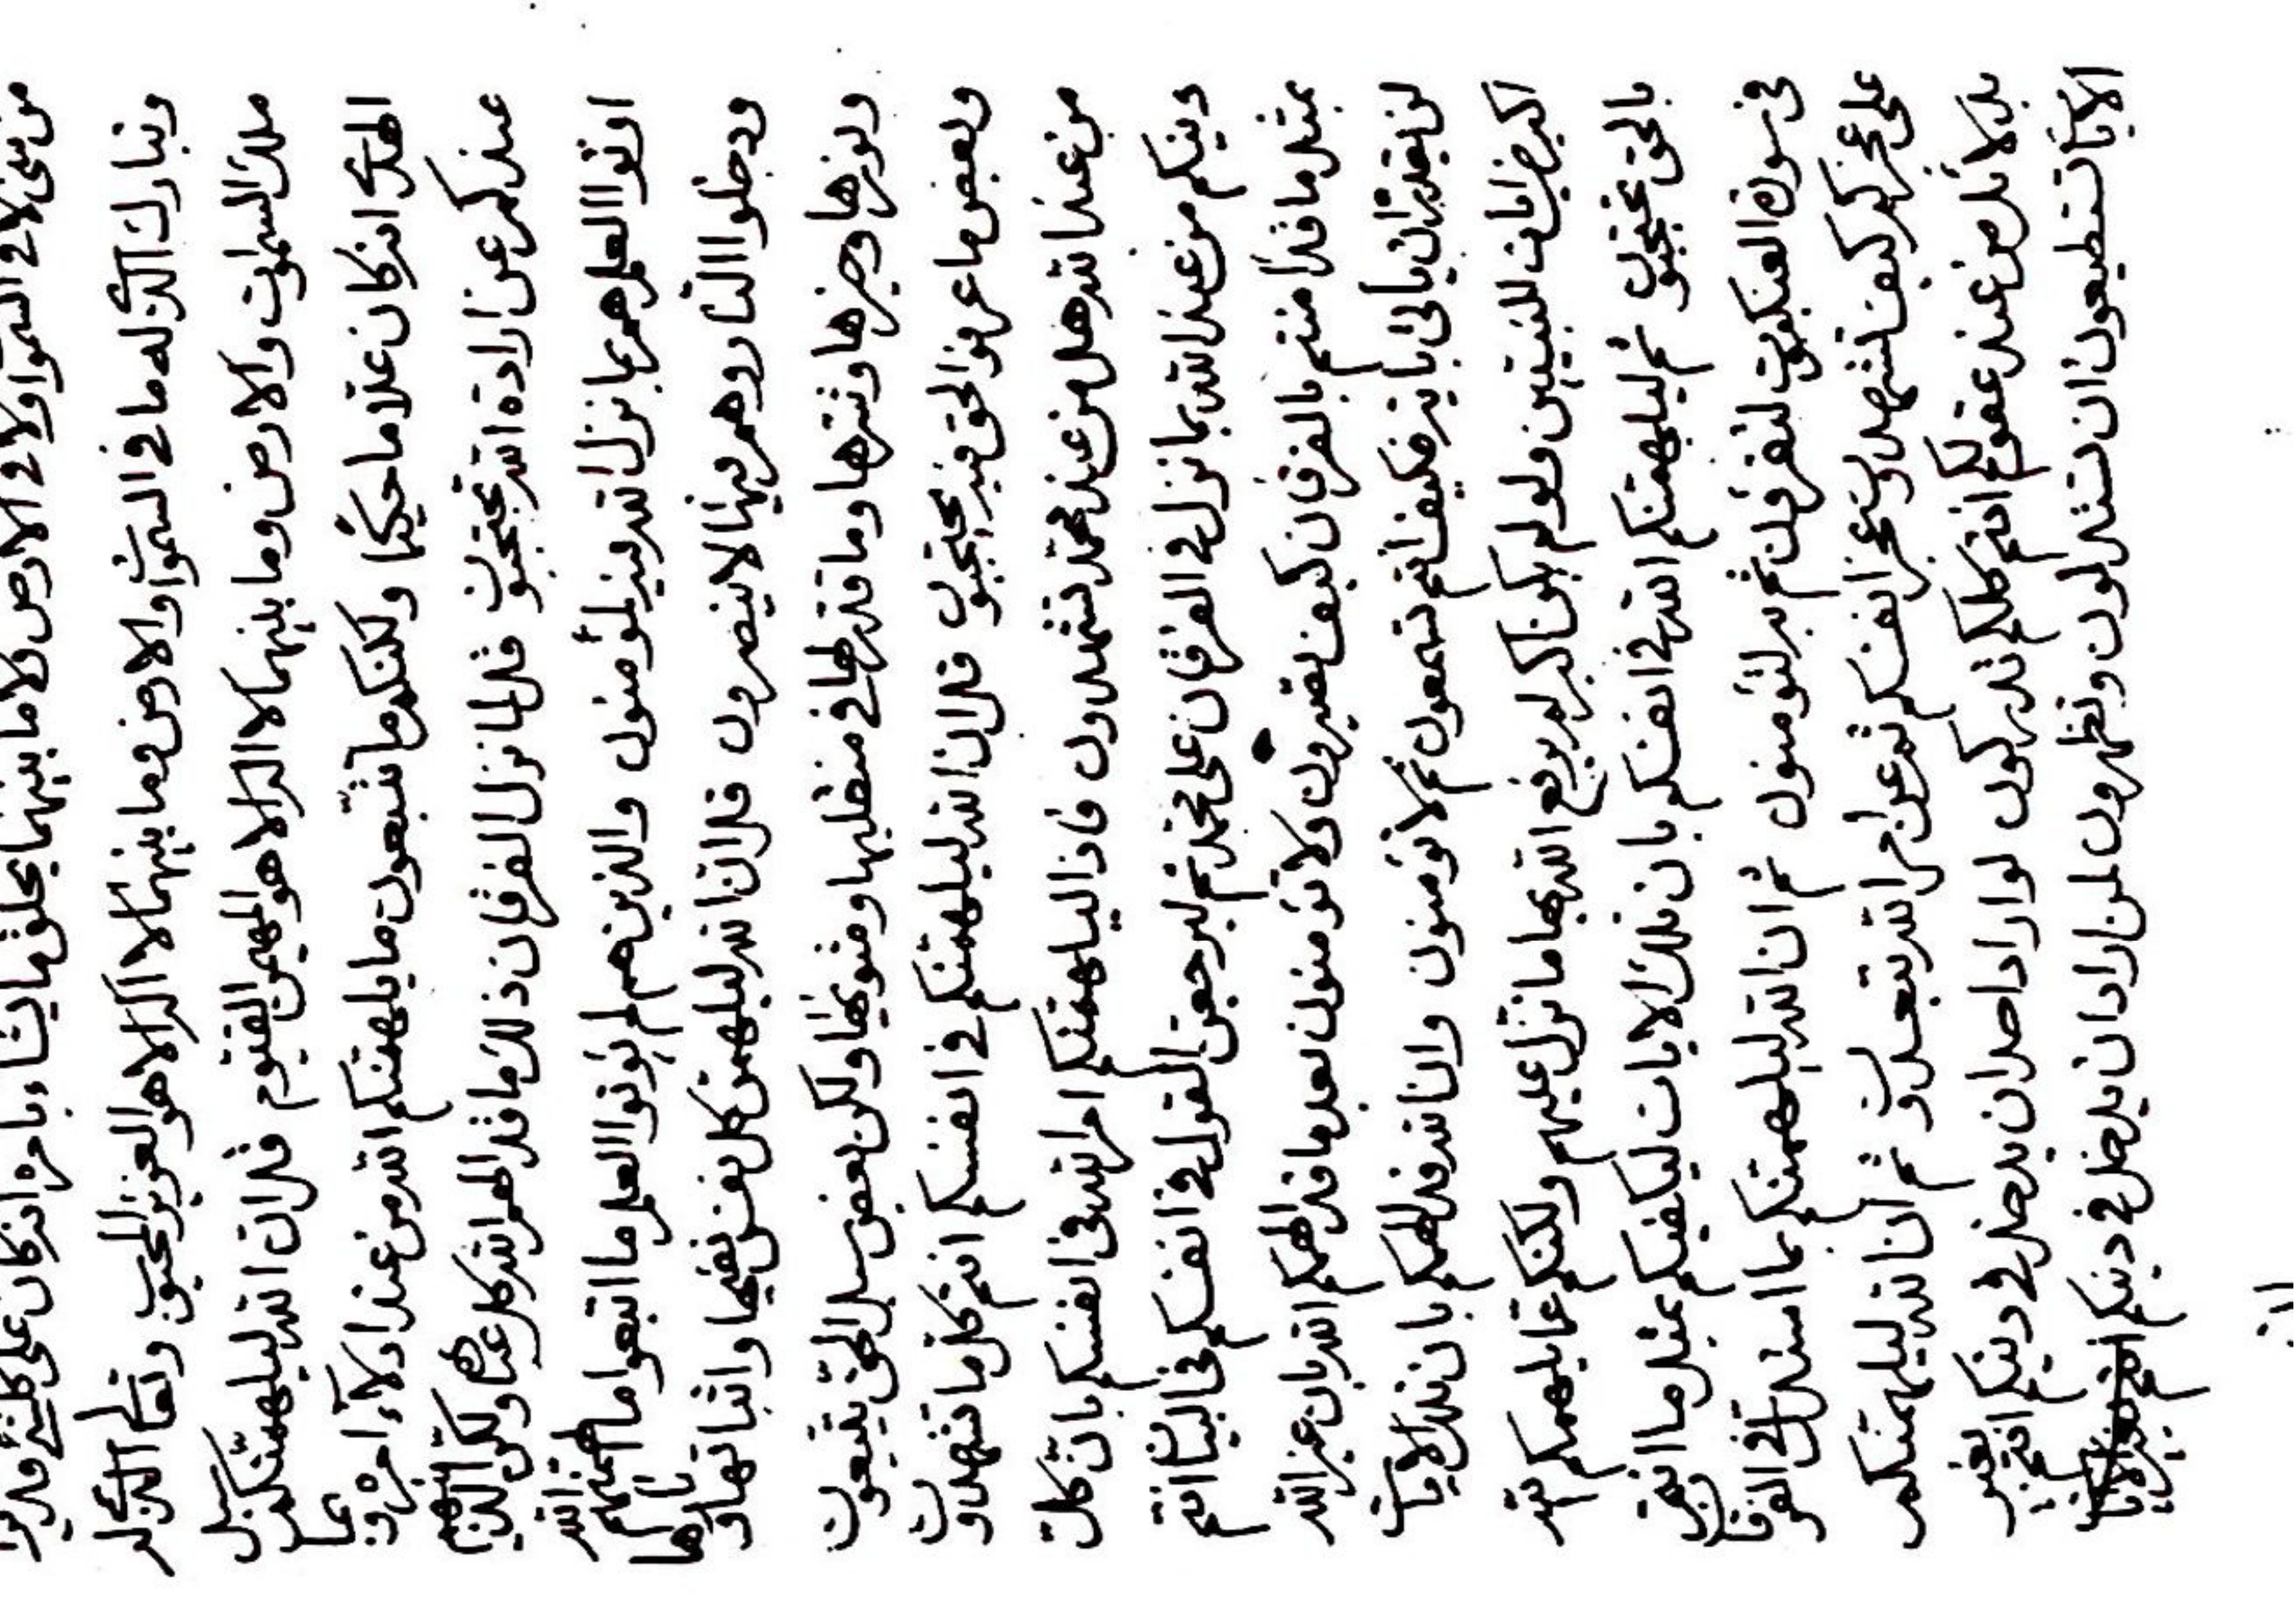 من شئ لا في السموات ولا في الارض ولا ما بينهما يخلق ما يشاء بامره انه كان على كلشئ قديرا
وتبارك الذي له ما في السموات والارض وما بينهما لا اله الا هو العزيز المحبوب وتعالى الذي له
ملك السموات والارض وما بينهما لا اله الا هو المهيمن القيوم قل ان الله ليلهمنكم سبل
الهدى انه كان علاما حكيما ولكنكم ما تتبعون ما يلهمنكم الله من عند ادلاء امره وعما
عندكم عن ارادة الله تحتجبون قل لما نزل الفرقان ذلك ما قد الهم الله كل عباده ولكن الذينهم
اوتوا العلم هم بما نزل الله فيه لمؤمنون والذين هم لم يؤتوا العلم ما اتبعوا ما الهمتهم الله
ودخلوا النار وهم فيها لا ينصرون قل ان الله ليلهمن كل نفس نفيها واثباتها و نارها
ونورها وخيرها وشرها وما قدر لها في منقلبها ومثويها ولكن بعض سبل الحق يتبعون
وبعض ما عرفوا الحق فيه يحتجبون قل ان الله ليلهمنكم في انفسكم انتم كل ما تشهدون
من عند الله هل من عند محمد تشهدون فاذا ليلهمنكم امر الله في انفسكم بان كل
دينكم من عند الله بما نزل في الفرقان على محمد ثم ليرجعن القول في انفسكم في البيان انتم
بمثل ما قد امنتم بالفرقان كيف تصبرون ولا تؤمنون بعد ما قد الهمكم الله بان غير الله
لن يقدر ان ياتي باية فكيف انتم تسمعون ثم لا تؤمنون وان الله قد الهمكم بان تلك الايات
اكبر ايات للنبيين ولو لم يكن اكبر لم يرفع الله بها ما نزل عليهم ولكنكم عما يلهمكم الله
بالحق تحتجبون ثم ليلهمنكم الله في انفسكم بان تلك الايات ليكفينكم بمثل ما انتم
في سورة العنكبوت لتقرئن ثم به لتؤمنون ثم ان الله ليلهمنكم بما استدل في الفرقان
على عجزكم كيف تشهدون عجز انفسكم ثم عن امر الله تبعدون ثم ان الله ليلهمنكم
بدلائل من عند عقولكم انتم كلكم تدركون لو اراد احد ان يدخل في دينكم انتم بغير
الايات تستطيعون ان تستدلون وتظهرون لمن اراد ان يدخل في دينكم